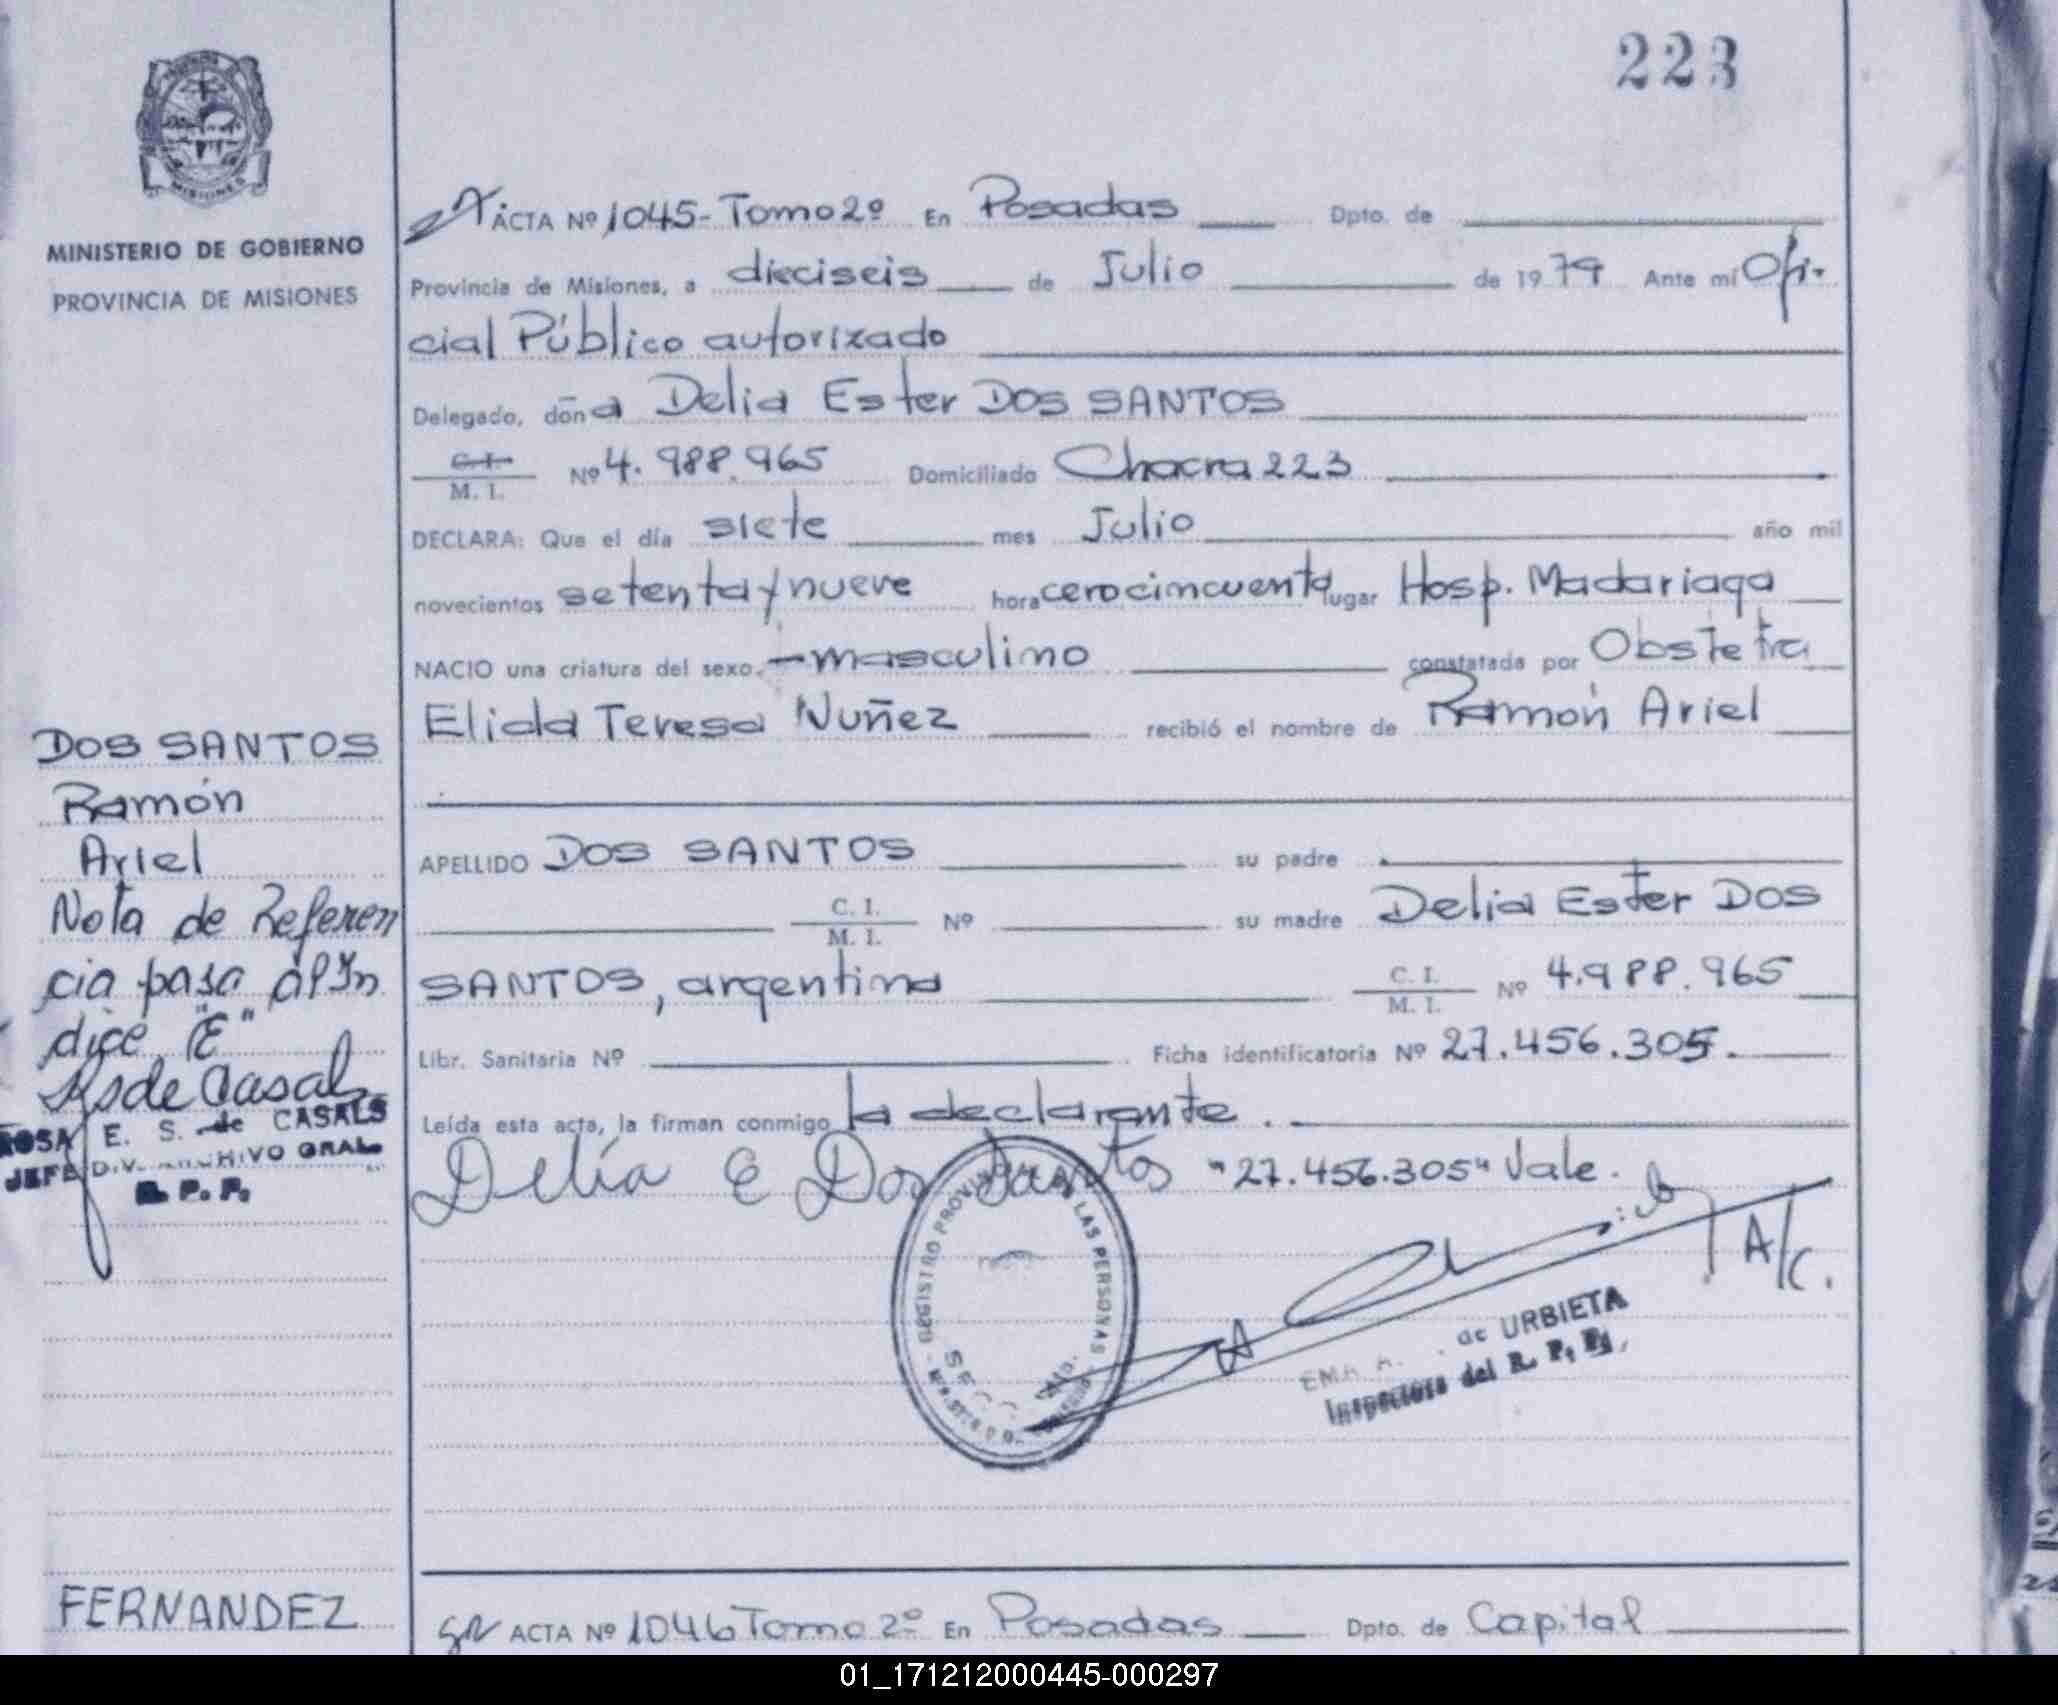 223
MISIONES
MINISTERIO DE GOBIERNO
PROVINCIA DE MISIONES
ACTA Nº 1045- Tomo 2º En Posadas Dpto. de
Provincia de Misiones, a dieciseis de Julio de 1979 Ante mí Ofi-
cial Público autorizado
Delegado, doña Delia Ester DOS SANTOS
C. I.
M. I. Nº 4.988.965 Domiciliado Chacra 223
DECLARA: Que el día siete mes Julio año mil
novecientos setenta y nueve hora cero cincuenta lugar Hosp. Madariaga
NACIO una criatura del sexo masculino constatada por Obstetra
Elida Teresa Nuñez recibió el nombre de Ramón Ariel
APELLIDO DOS SANTOS su padre
C. I.
M. I. Nº su madre Delia Ester DOS
SANTOS, argentina C. I.
M. I. Nº 4.988.965
Libr. Sanitaria Nº Ficha identificatoria Nº 27.456.305.
Leída esta acta, la firman conmigo la declarante.
Delía E Dos Santos "27.456.305" Vale.
A/c.
REGISTRO PROVINCIAL LAS PERSONAS
de URBIETA
Inspectora del R. P. P.
DOS SANTOS
Ramón
Ariel
Nota de Referen
cia pasa al In
dice "E"
RSde Casals
ROSA E. S. de CASALS
JEFE DIV. ARCHIVO GRAL.
R. P. P.
FERNANDEZ
ACTA Nº 1046 Tomo 2º En Posadas Dpto. de Capital
01_171212000445-000297